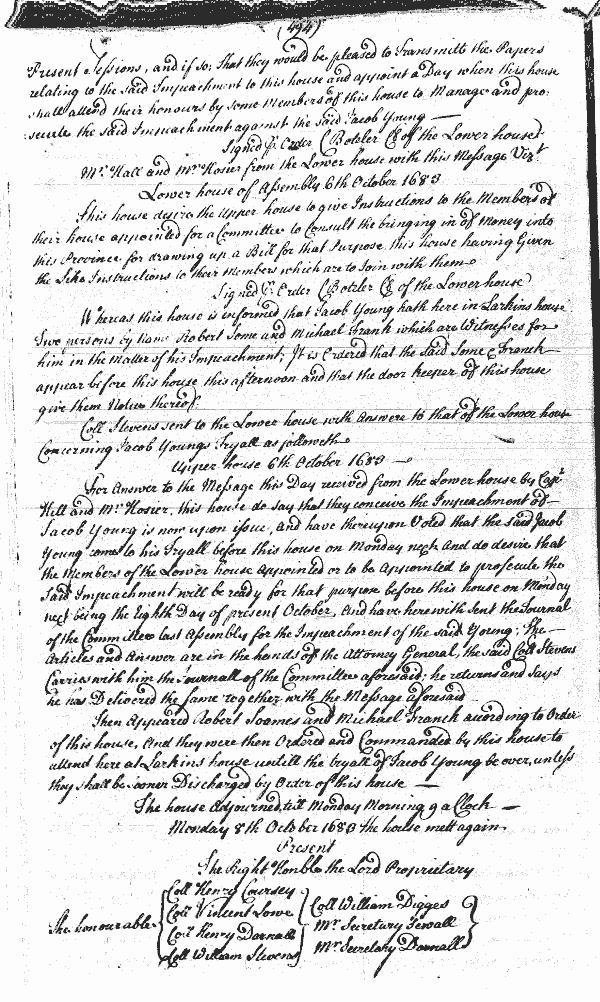 (494)
Present Sessions, and if so: That they would be pleased to Transmitt the Papers
relating to the said Impeachment to this house and appoint a Day when this house
shall attend their honours by some Members of this house to Manage and pro:
secute the said Impeachment against the said Jacob Young
Signed p. Order C Boteler Cl of the Lower house
Mr. Hall and Mr. Hosier from the Lower house with this Message Vizt
Lower house of Assembly 6th October 1683
This house desire the Upper house to give Instructions to the Members of
their house appointed for a Committee to Consult the bringing in of Money into
this Province for drawing up a Bill for that Purpose this house having Given
the Like Instructions to their Members which are to Join with them
Signed p. Order C Boteler Cl of the Lower house
Whereas this house is informed that Jacob Young hath here in Larkins house
Two persons by name Robert Some and Michael Frank which are Witnesses for
him in the Matter of his Impeachment; It is Ordered that the said Some & Franck
appear before this house this afternoon and that the door keeper of this house
give them Notice thereof.
Coll Stevens sent to the Lower house with Answere to that of the Lower house
Concerning Jacob Youngs Tryall as followeth
Upper house 6th October 1683
For Answer to the Message this Day received from the Lower house by Capt
Hill and Mr. Hosier, this house do say that they conceive the Impeachment of
Jacob Young is now upon issue, and have thereupon Voted that the said Jacob
Young come to his Tryall before this house on Monday next and do desire that
the Members of the Lower house Appointed or to be Appointed to prosecute the
said Impeachment will be ready for that purpose before this house on Monday
next being the Eighth Day of present October, And have herewith sent the Journal
of the Committee last Assembly for the Impeachment of the said Young; The
Articles and Answer are in the hands of the Attorney General, the said Coll Stevens
Carries with him the Journall of the Committee aforesaid; he returns and says
he has Delivered the same together with the Message aforesaid
Then Appeared Robert Soomes and Michael Franck according to Order
of this house, And they were then Ordered and Commanded by this house to
attend here at Larkins house untill the tryall of Jacob Young be over, unless
they shall be sooner Discharged by Order of this house
The house Adjourned till Monday Morning 9 a Clock
Monday 8th October 1683 the house mett again
Present
The Right Honble the Lord Proprietary
The honourable
Coll Henry Coursey
Coll Vincent Lowe
Coll Henry Darnall
Coll William Stevens
Coll William Digges
Mr. Secretary Sewall
Mr. Secretary Darnall